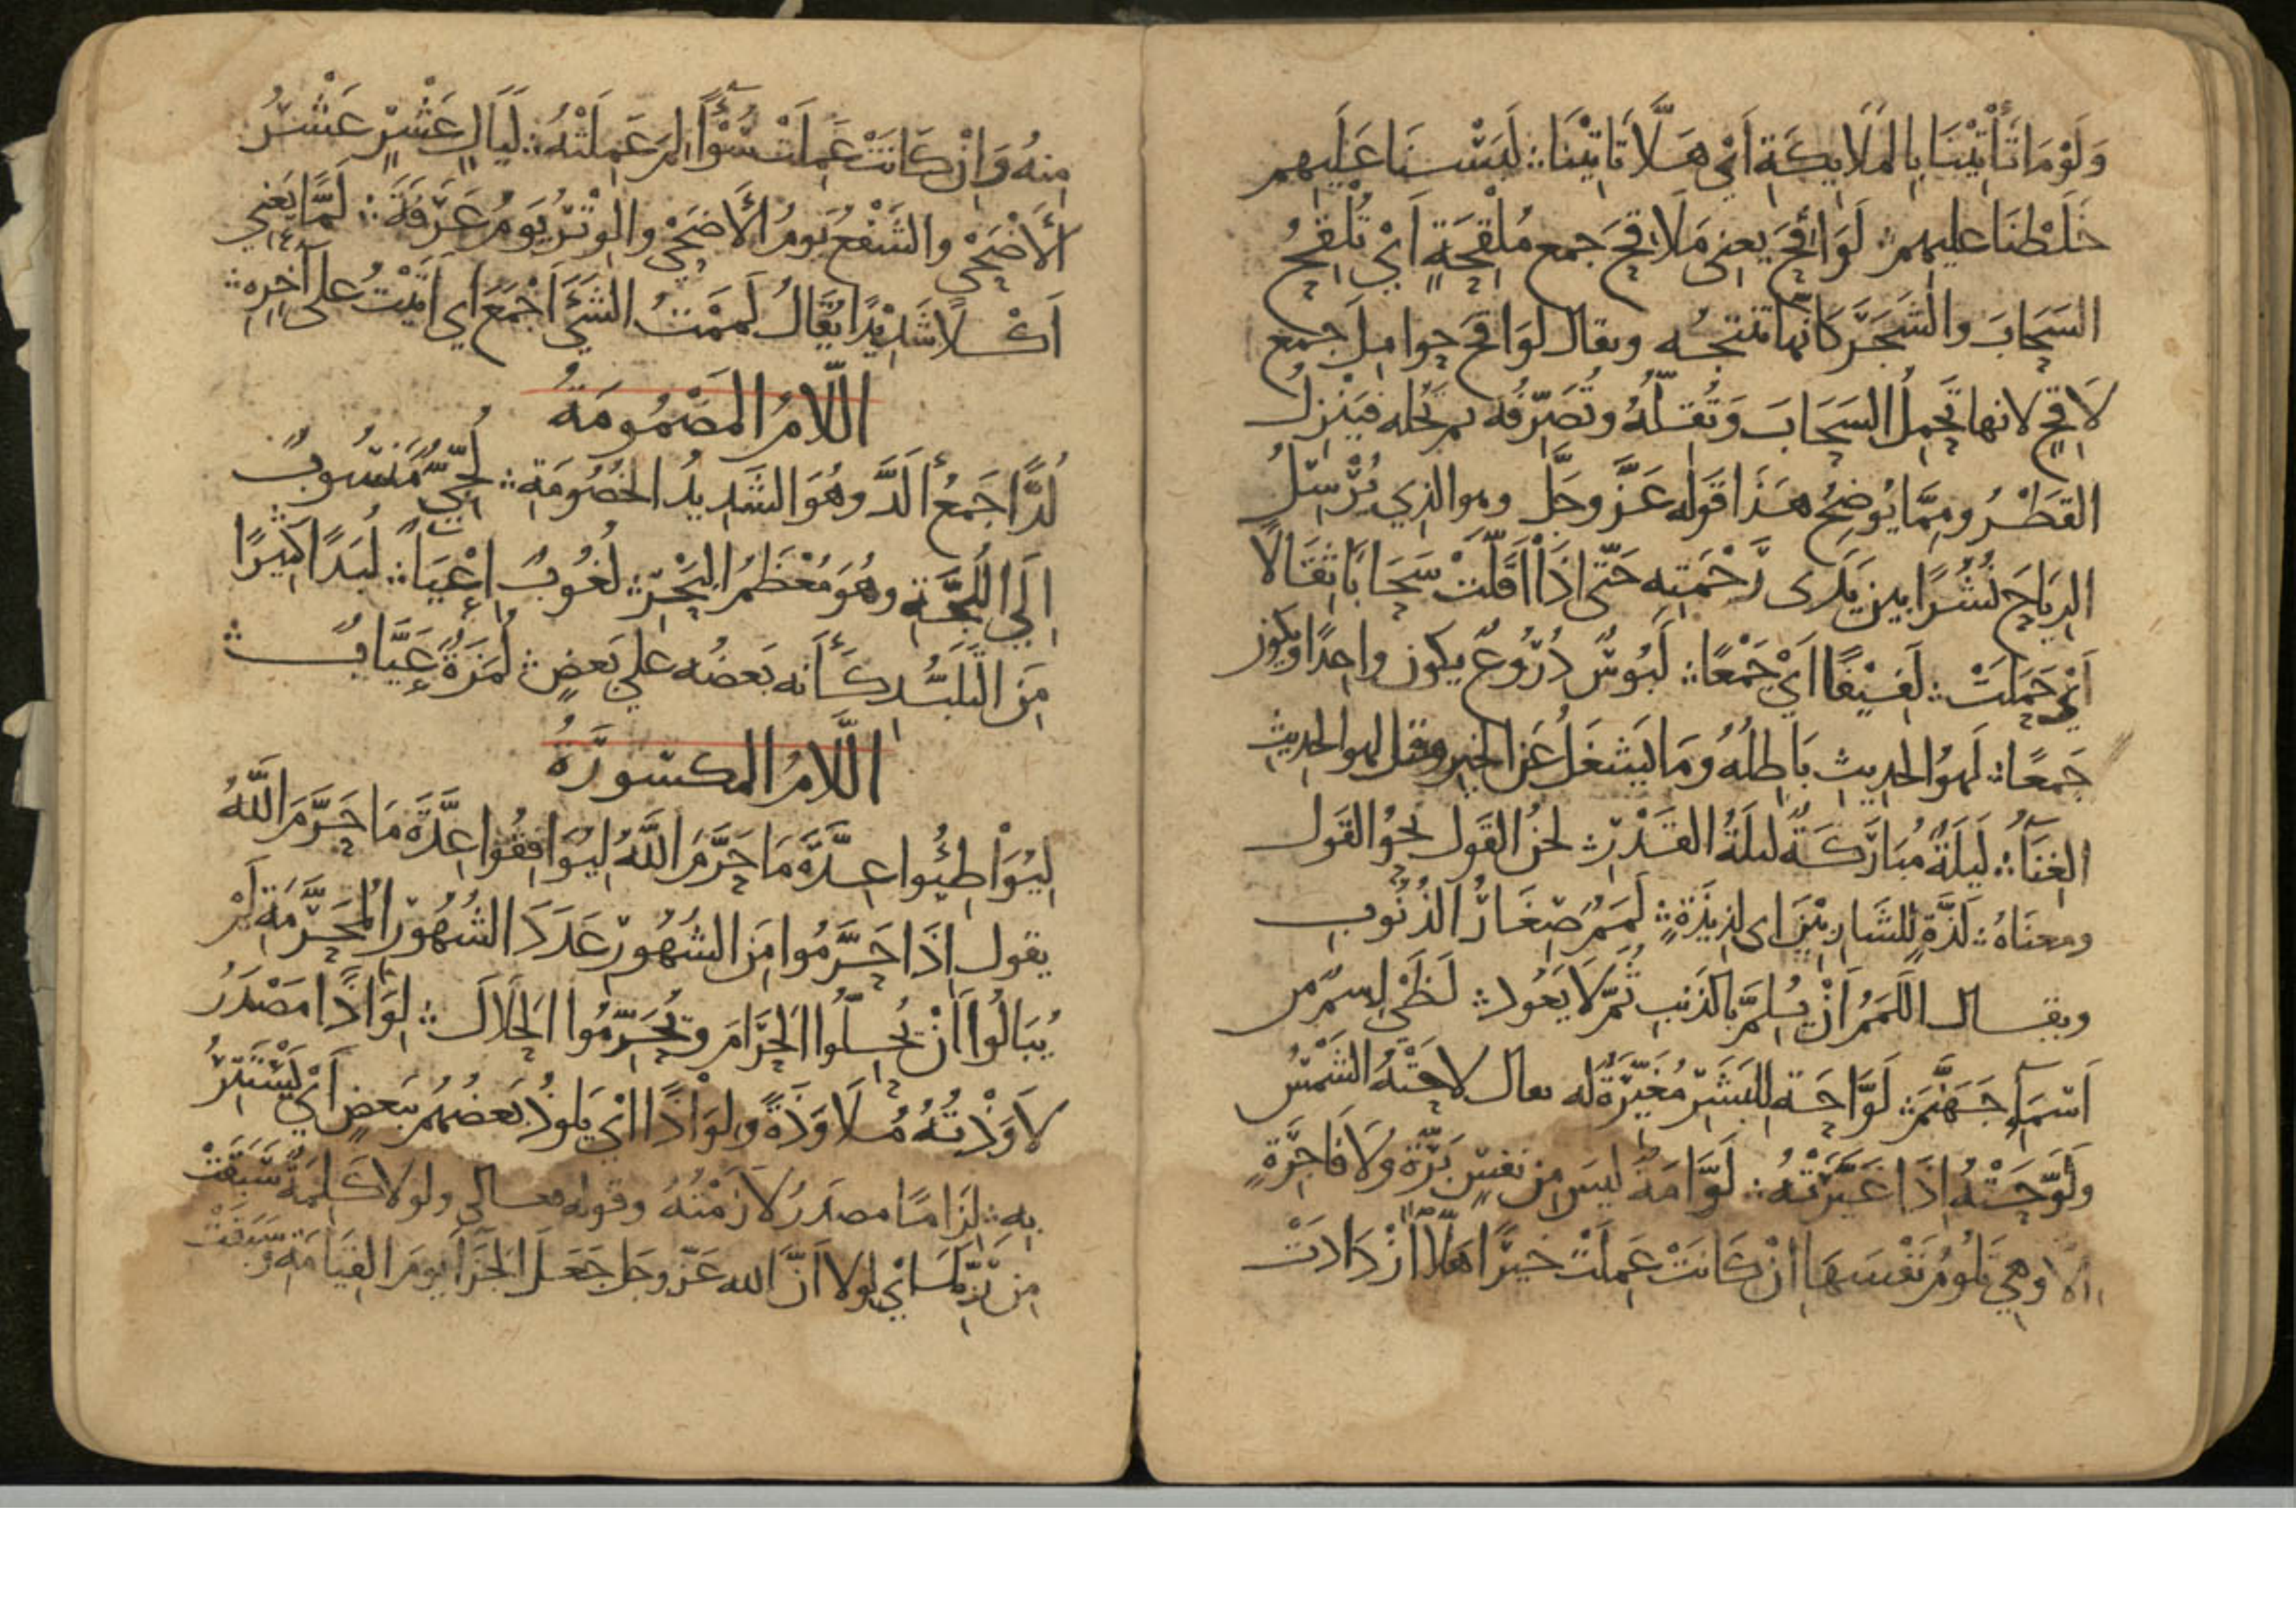 وَلَوْ مَا تَأْتِيْنَا بِالمَلَايِكَةِ اَيْ هَلَّا تَاتِيْنَا ؞ لَبَسْنَا عَلَيهِم
خَلَطْنَا عليهم ؞ لَوَاقِحَ يعني مَلَاقِحَ جمع مُلْقِحَةٍ اَيْ تُلْقِحُ
السَحَابَ والشَجَرَ كَانَّها تنتجُه ويقال لَوَاقِح حِوامِلَ جمع
لَاقِحٍ لانها تَحمِلُ السَحَابَ وَتُقِلّهُ وتُصَرِّفُه ثم تحُله فيَنْزِلُ
القَطْرُ ومِمَّا يُوضِحُ هَذَا قَوْله عَزَّ وجَلَّ وهو الذي يُرْسِلُ
الرِيَاحَ نُشُرًا بينَ يَدَى رَحْمَتِهِ حَتّى اِذَا اَقَلّتْ سَحَابًا ثِقَالًا
اَيْ حَمَلَتْ ؞ لَفِيْفًا اَيْ جَمْعًا ؞ لَبُوْسٌ دُرُوعٌ يكون واحِدًا ويكون
جَمعًا ؞ لَهوُ الحَدِيثِ بَاطِلُهُ وَمَا يَشغَلُ عَن الخيرِ وقيل لهو الحديث
الغِنَآءُ ؞ لَيلَةٌ مُبَارَكَةٌ ليلَةُ القَدْرِ ؞ لحَنُ القَولِ نحوُ القَول
ومعنَاهُ ؞ لَذَّةٍ لِلشَارِبِيْنَ اى لذِيذَةٍ ؞ لَمَمٌ صِغَارُ الذُنُوبِ
ويقال اللَمَمُ اَنْ يُلِمَّ بالذَنبِ ثُمَّ لا يَعُود ؞ لَظَىٰ اِسمٌ من
اَسْمَاءِ جَهَنَّمَ ؞ لَوَّاحَةٌ لِلبَشَرِ مُغَيِّرَةٌ له يقال لاحَتْهُ الشَمْسُ
ولَوَّحَتْهُ اِذَا غَيَّرَتْهُ ؞ لَوَّامَةٌ ليسَ مِن نَفسٍ بَرَّةٍ ولَا فَاجِرَةٍ
الا وهي تَلُومُ نَفْسَهَا اِنْ كَانَتْ عَمِلَتْ خَيرًا هَلّا ازْدَادَتْ
مِنهُ وَاِنْ كَانَتْ عَمِلَتْ سُوْءًا لِمَ عَمِلَتْهُ ؞ لَيَالٍ عَشْرٍ عَشْرُ
الأَضْحَىٰ والشَفْعُ يَومُ الأضحَىٰ والوَتْرُ يَومُ عَرَفَةَ ؞ لَمًّا يَعْني
اَكْلًا شَدِيْدًا يُقَالُ لَمَمْتُ الشَيْءَ اَجْمَعَ اي اَتَيْتُ على آخِرِه ؞
اللَّامُ المَضْمُومَةُ
لُدًّا جَمعُ أَلَدَّ وهُوَ الشَدِيدُ الخُصُومَةِ ؞ لُجِّيٌّ مَنسُوبٌ
اِلَي اللُجَّةِ وهُوَ مُعْظَمُ البَحْرِ ؞ لُغُوبٌ اِعْيَآءٌ ؞ لُبَدًا كَثِيرًا
مِنَ التَلَبُّدِ كَأَنه بَعضُه علي بَعضٍ ؞ لُمَزَةٍ عَيَّابٍ ؞
اللَّامُ المَكسُورَةُ
لِيُوَاطِئُوا عِدَّةَ مَا حَرَّمَ اللَّهُ لِيُوَافِقُوا عِدَّةَ مَا حَرَّمَ اللَّهُ
يقول اِذَا حَرَّمُوا مِنَ الشُهُورِ عَدَدَ الشُهُورِ المُحَرَّمَةِ لَمْ
يُبَالُوا اَنْ يُحِلّوُا الحَرَامَ ويُحَرِّمُوا الحَلَالَ ؞ لِوَاذًا مَصْدَرُ
لَاوَذْتُهُ مُلَاوَذَةً ولِوَاذًا ايْ يَلوذُ بَعضُهُم ببَعضٍ اَيْ يَسْتَتِرُ
بِه ؞ لِزَامًا مصدَرُ لَازَمْتُهُ وقوله تعالى ولولا كَلِمَةٌ سَبَقَتْ
مِن رَبِّكَ ايْ لولا اَنَّ الله عَزّ وجل جَعَلَ الجَزَآ يومَ القِيَامَةِ وسَبَقَتْ